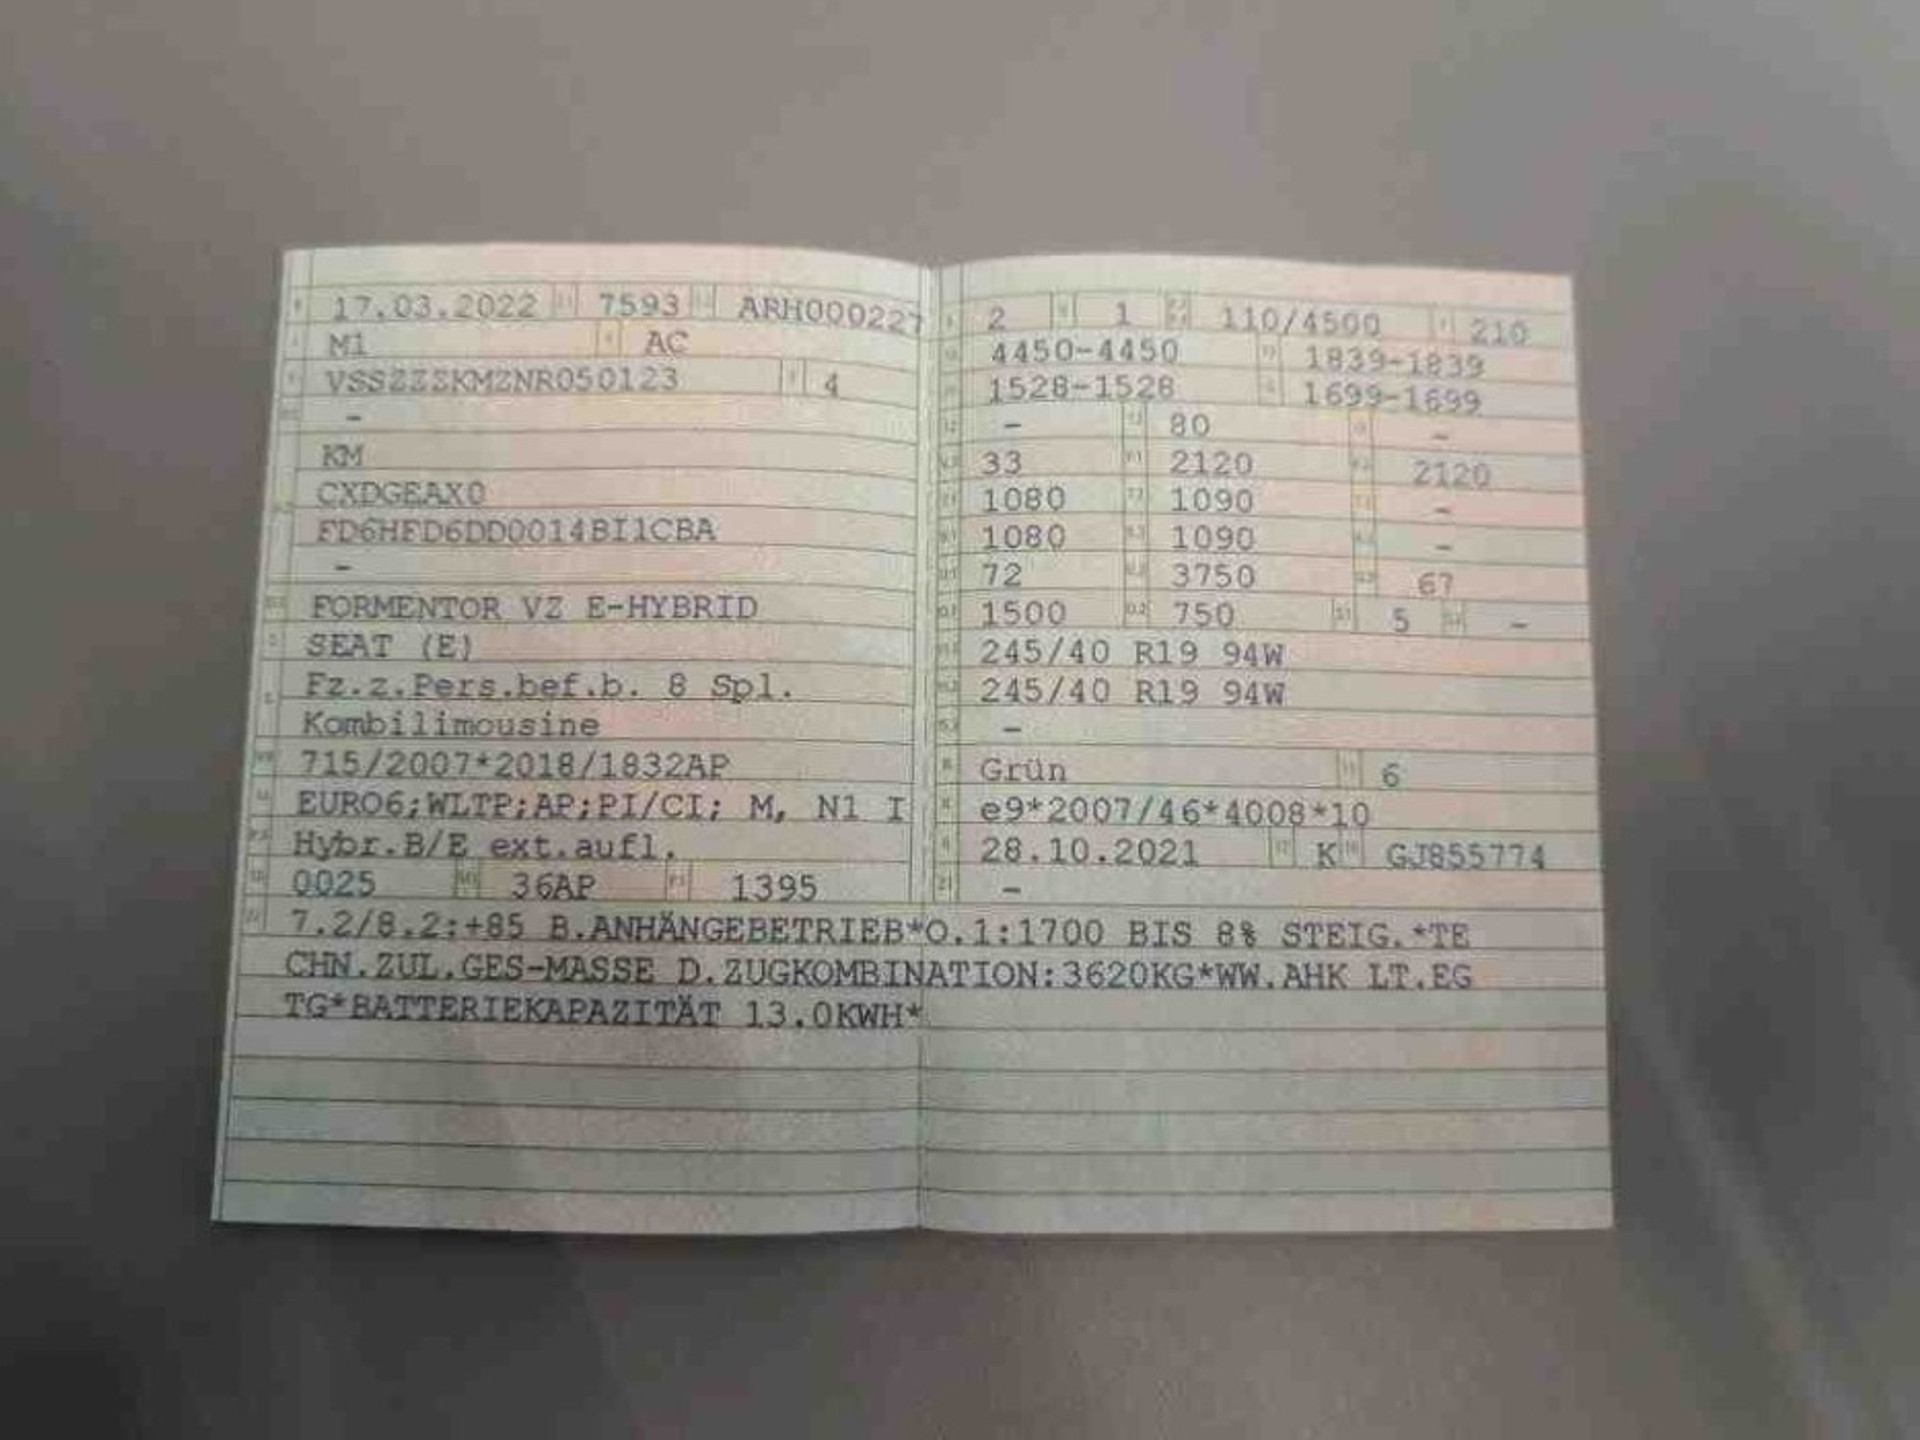 17.03.2022 7593 ARH000227
M1 AC
VSSZZZKMZNR050123 4
-
KM
CXDGEAX0
FD6HFD6DD0014BI1CBA
-
FORMENTOR VZ E-HYBRID
SEAT (E)
Fz.z.Pers.bef.b. 8 Spl.
Kombilimousine
715/2007*2018/1832AP
EURO6;WLTP;AP;PI/CI; M, N1 I
Hybr.B/E ext.aufl.
0025 36AP 1395
2 1 110/4500 210
4450-4450 1839-1839
1528-1528 1699-1699
- 80 -
33 2120 2120
1080 1090 -
1080 1090 -
72 3750 67
1500 750 5 -
245/40 R19 94W
245/40 R19 94W
-
Grün 6
e9*2007/46*4008*10
28.10.2021 K GJ855774
-
7.2/8.2:+85 B.ANHÄNGEBETRIEB*O.1:1700 BIS 8% STEIG.*TE
CHN.ZUL.GES-MASSE D.ZUGKOMBINATION:3620KG*WW.AHK LT.EG
TG*BATTERIEKAPAZITÄT 13.0KWH*